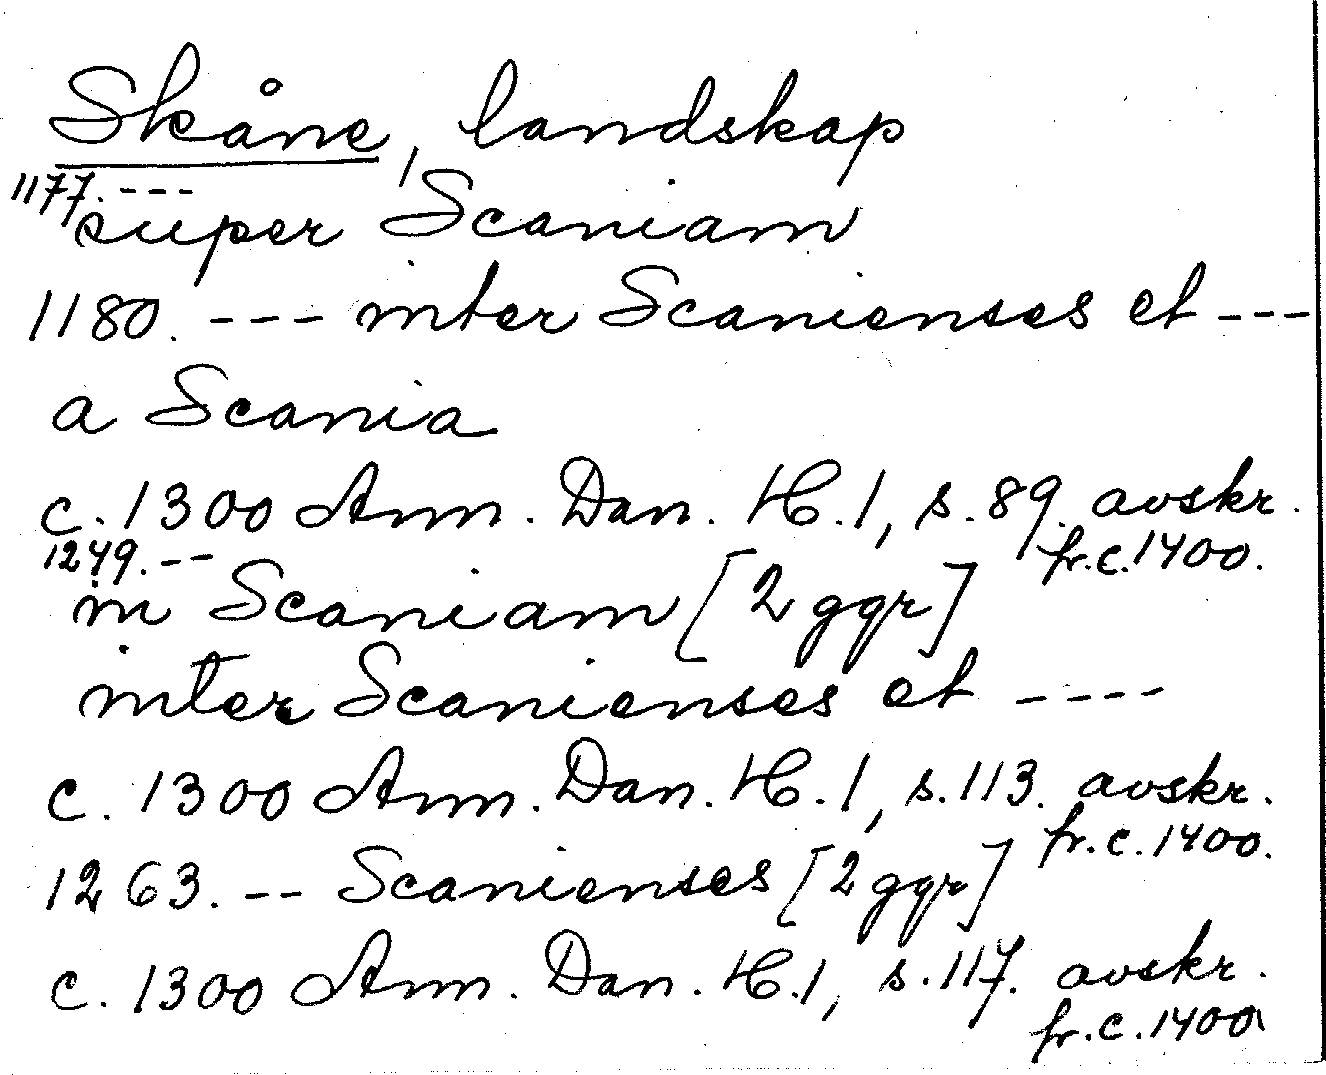 Skåne, landskap
1177. ---
super Scaniam
1180. --- inter Scanienses et ---
a Scania
c. 1300 Ann. Dan. H. 1, s. 89. avskr.
fr. c. 1400.
1249. --
in Scaniam [2 ggr]
inter Scanienses et ----
c. 1300 Ann. Dan. H. 1, s. 113. avskr.
fr. c. 1400.
1263. -- Scanienses [2 ggr]
c. 1300 Ann. Dan. H. 1, s. 117. avskr.
fr. c. 1400